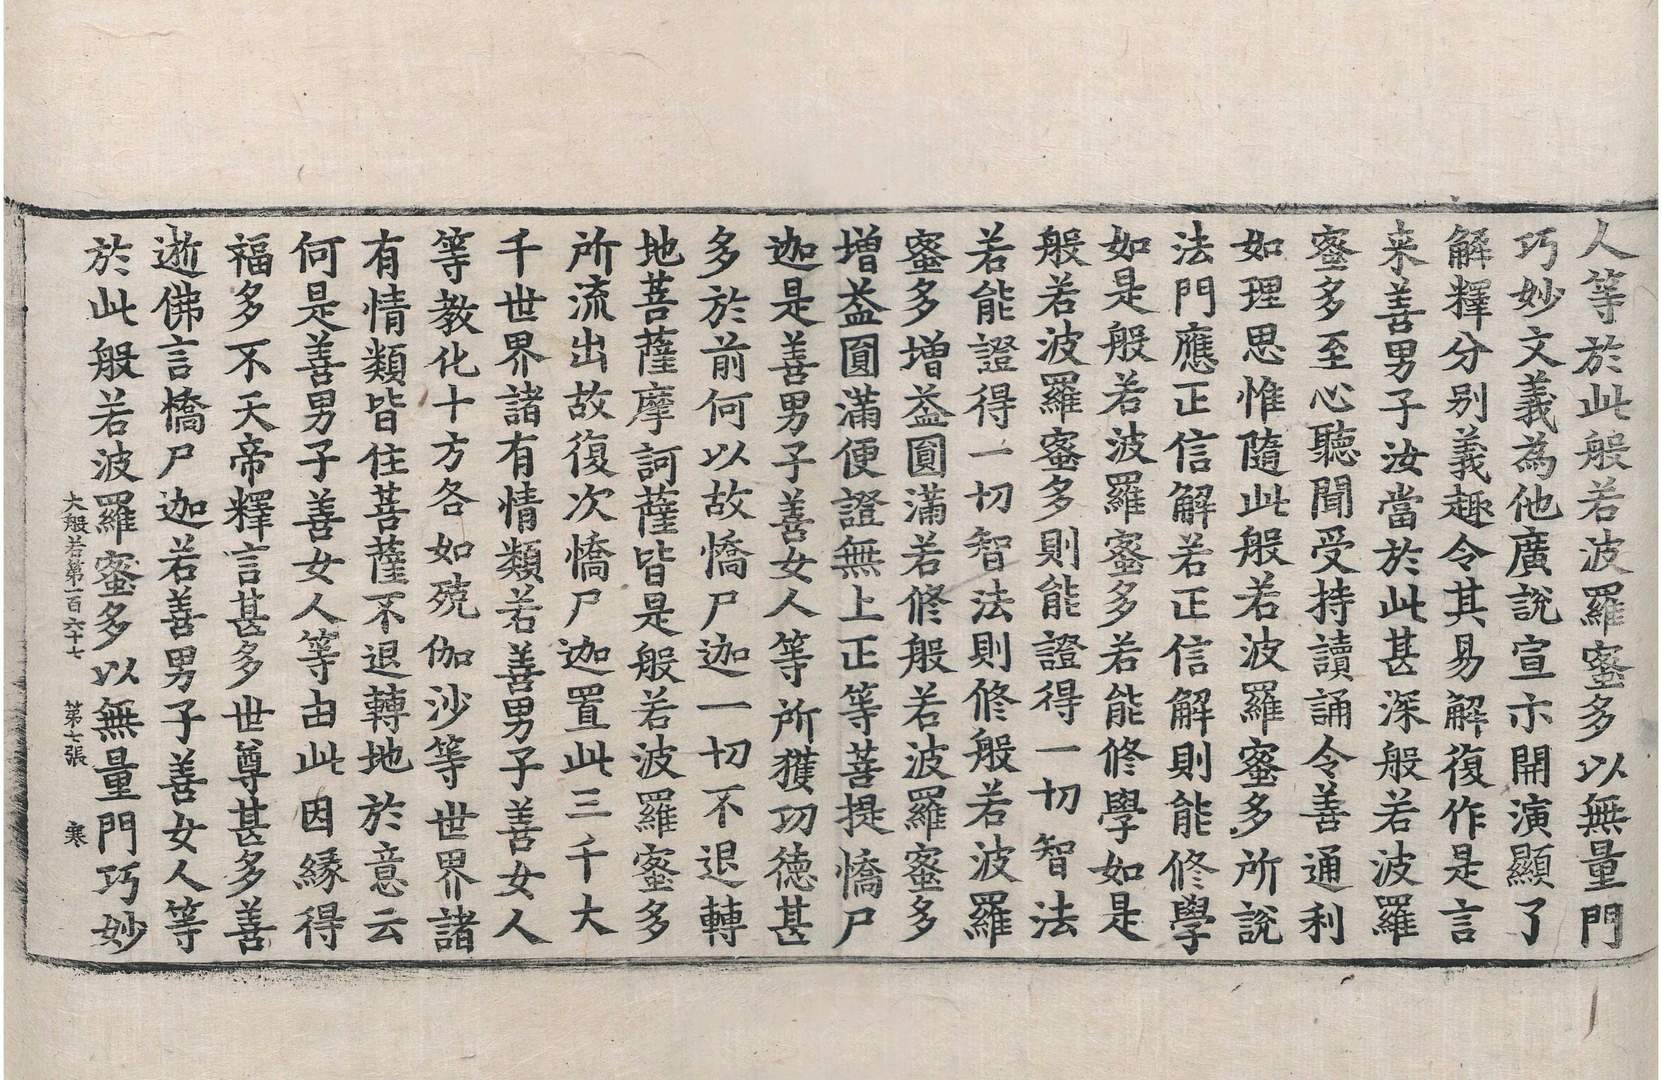 人等於此般若波羅蜜多以無量門
巧妙文義為他廣說宣示開演顯了
解釋分別義趣令其易解復作是言
来善男子汝當於此甚深般若波羅
蜜多至心聽聞受持讀誦令善通利
如理思惟隨此般若波羅蜜多所說
法門應正信解若正信解則能修學
如是般若波羅蜜多若能修學如是
般若波羅蜜多則能證得一切智法
若能證得一切智法則修般若波羅
蜜多增益圓滿若修般若波羅蜜多
增益圓滿便證無上正等菩提憍尸
迦是善男子善女人等所獲功德甚
多於前何以故憍尸迦一切不退轉
地菩薩摩訶薩皆是般若波羅蜜多
所流出故復次憍尸迦置此三千大
千世界諸有情類若善男子善女人
等教化十方各如殑伽沙等世界諸
有情類皆住菩薩不退轉地於意云
何是善男子善女人等由此因緣得
福多不天帝釋言甚多世尊甚多善
逝佛言憍尸迦若善男子善女人等
於此般若波羅蜜多以無量門巧妙
大般若第一百六十七 第七張 寒